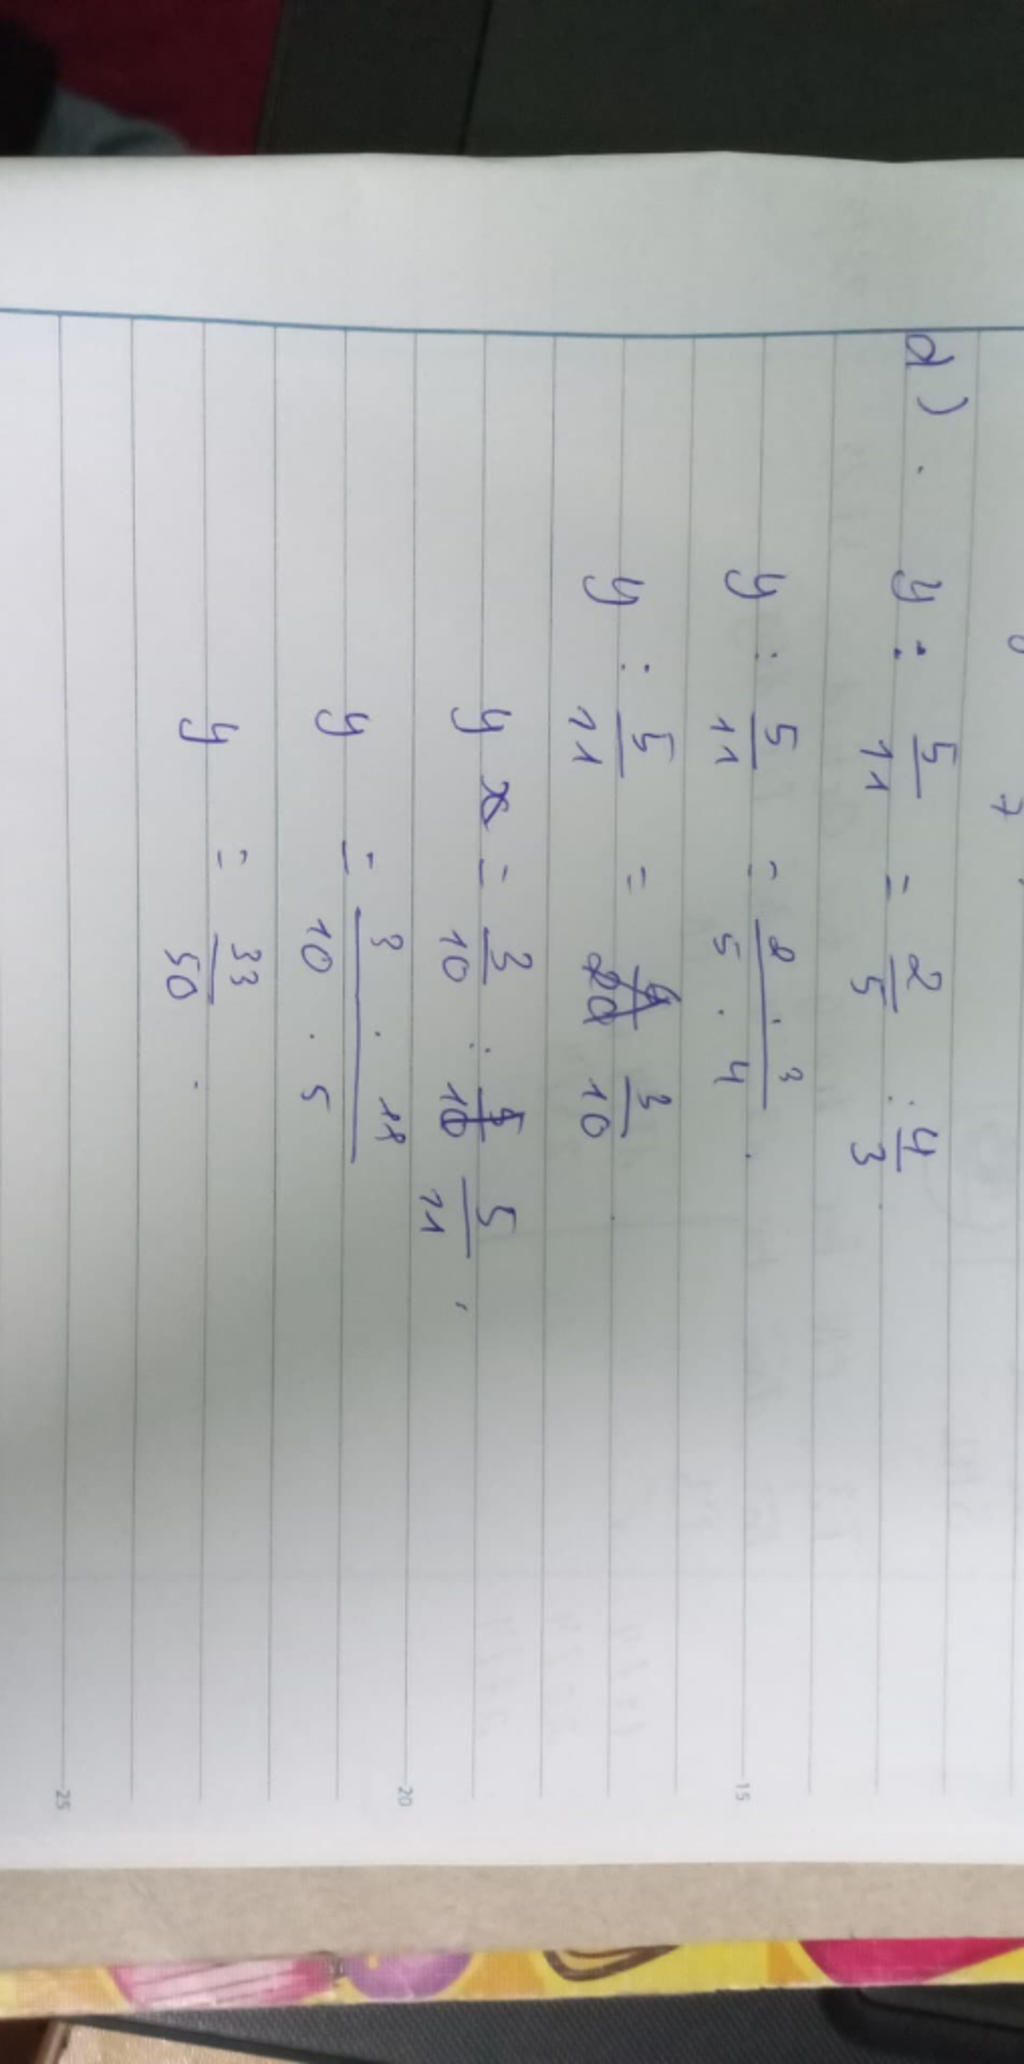 d) . y : 5/11 = 2/5 : 4/3
y : 5/11 = 2 . 3 / 5 . 4 .
y : 5/11 = 3/10
y = 3/10 : 5/11
y = 3 . 11 / 10 . 5
y = 33/50 .
15
20
25